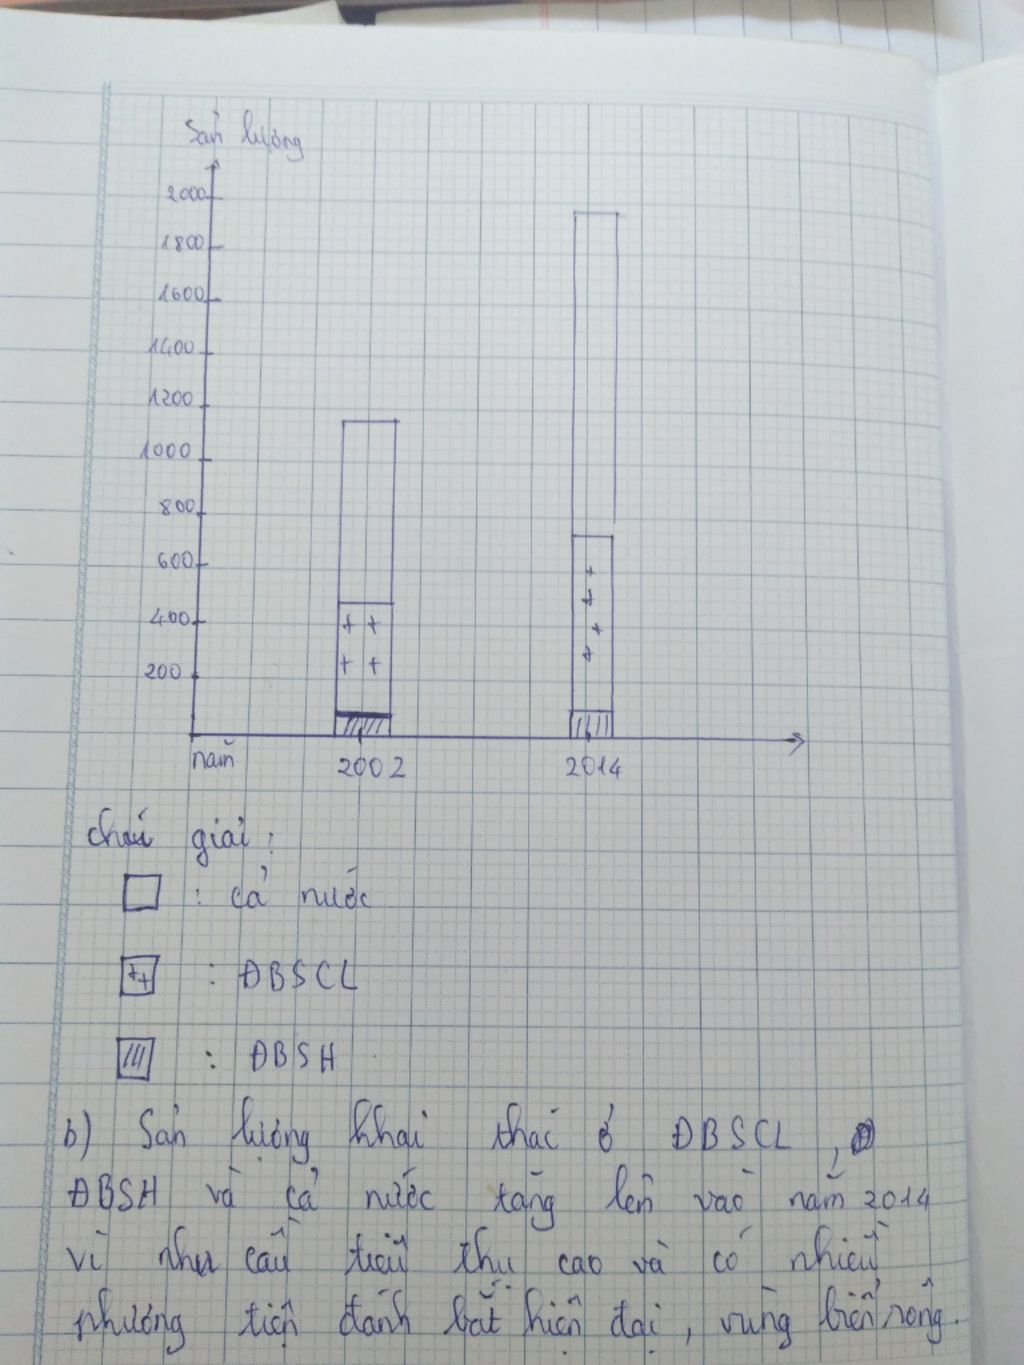 Sản lượng
2000
1800
1600
1400
1200
1000
800
600
400
200
năm 2002 2014
chú giải :
: cả nước
++ : ĐBSCL
: ĐBSH
b) Sản lượng khai thác ở ĐBSCL ,
ĐBSH và cả nước tăng lên vào năm 2014
vì nhu cầu tiêu thụ cao và có nhiều
phương tiện đánh bắt hiện đại , vùng biển rộng .